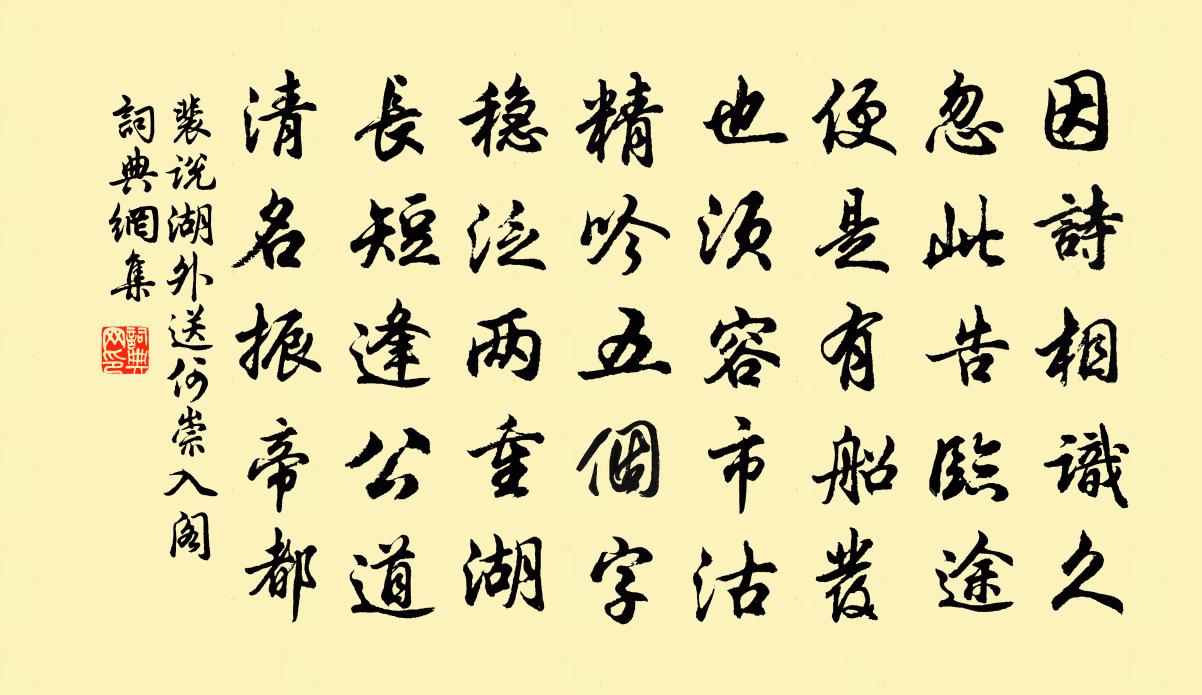 因詩相識久
忽此告臨途
便是有船發
也須容市沽
精吟五個字
穏泛两重湖
長短逢公道
清名振帝都
裴说湖外送何崇入阁
詞典網集
詞典网印